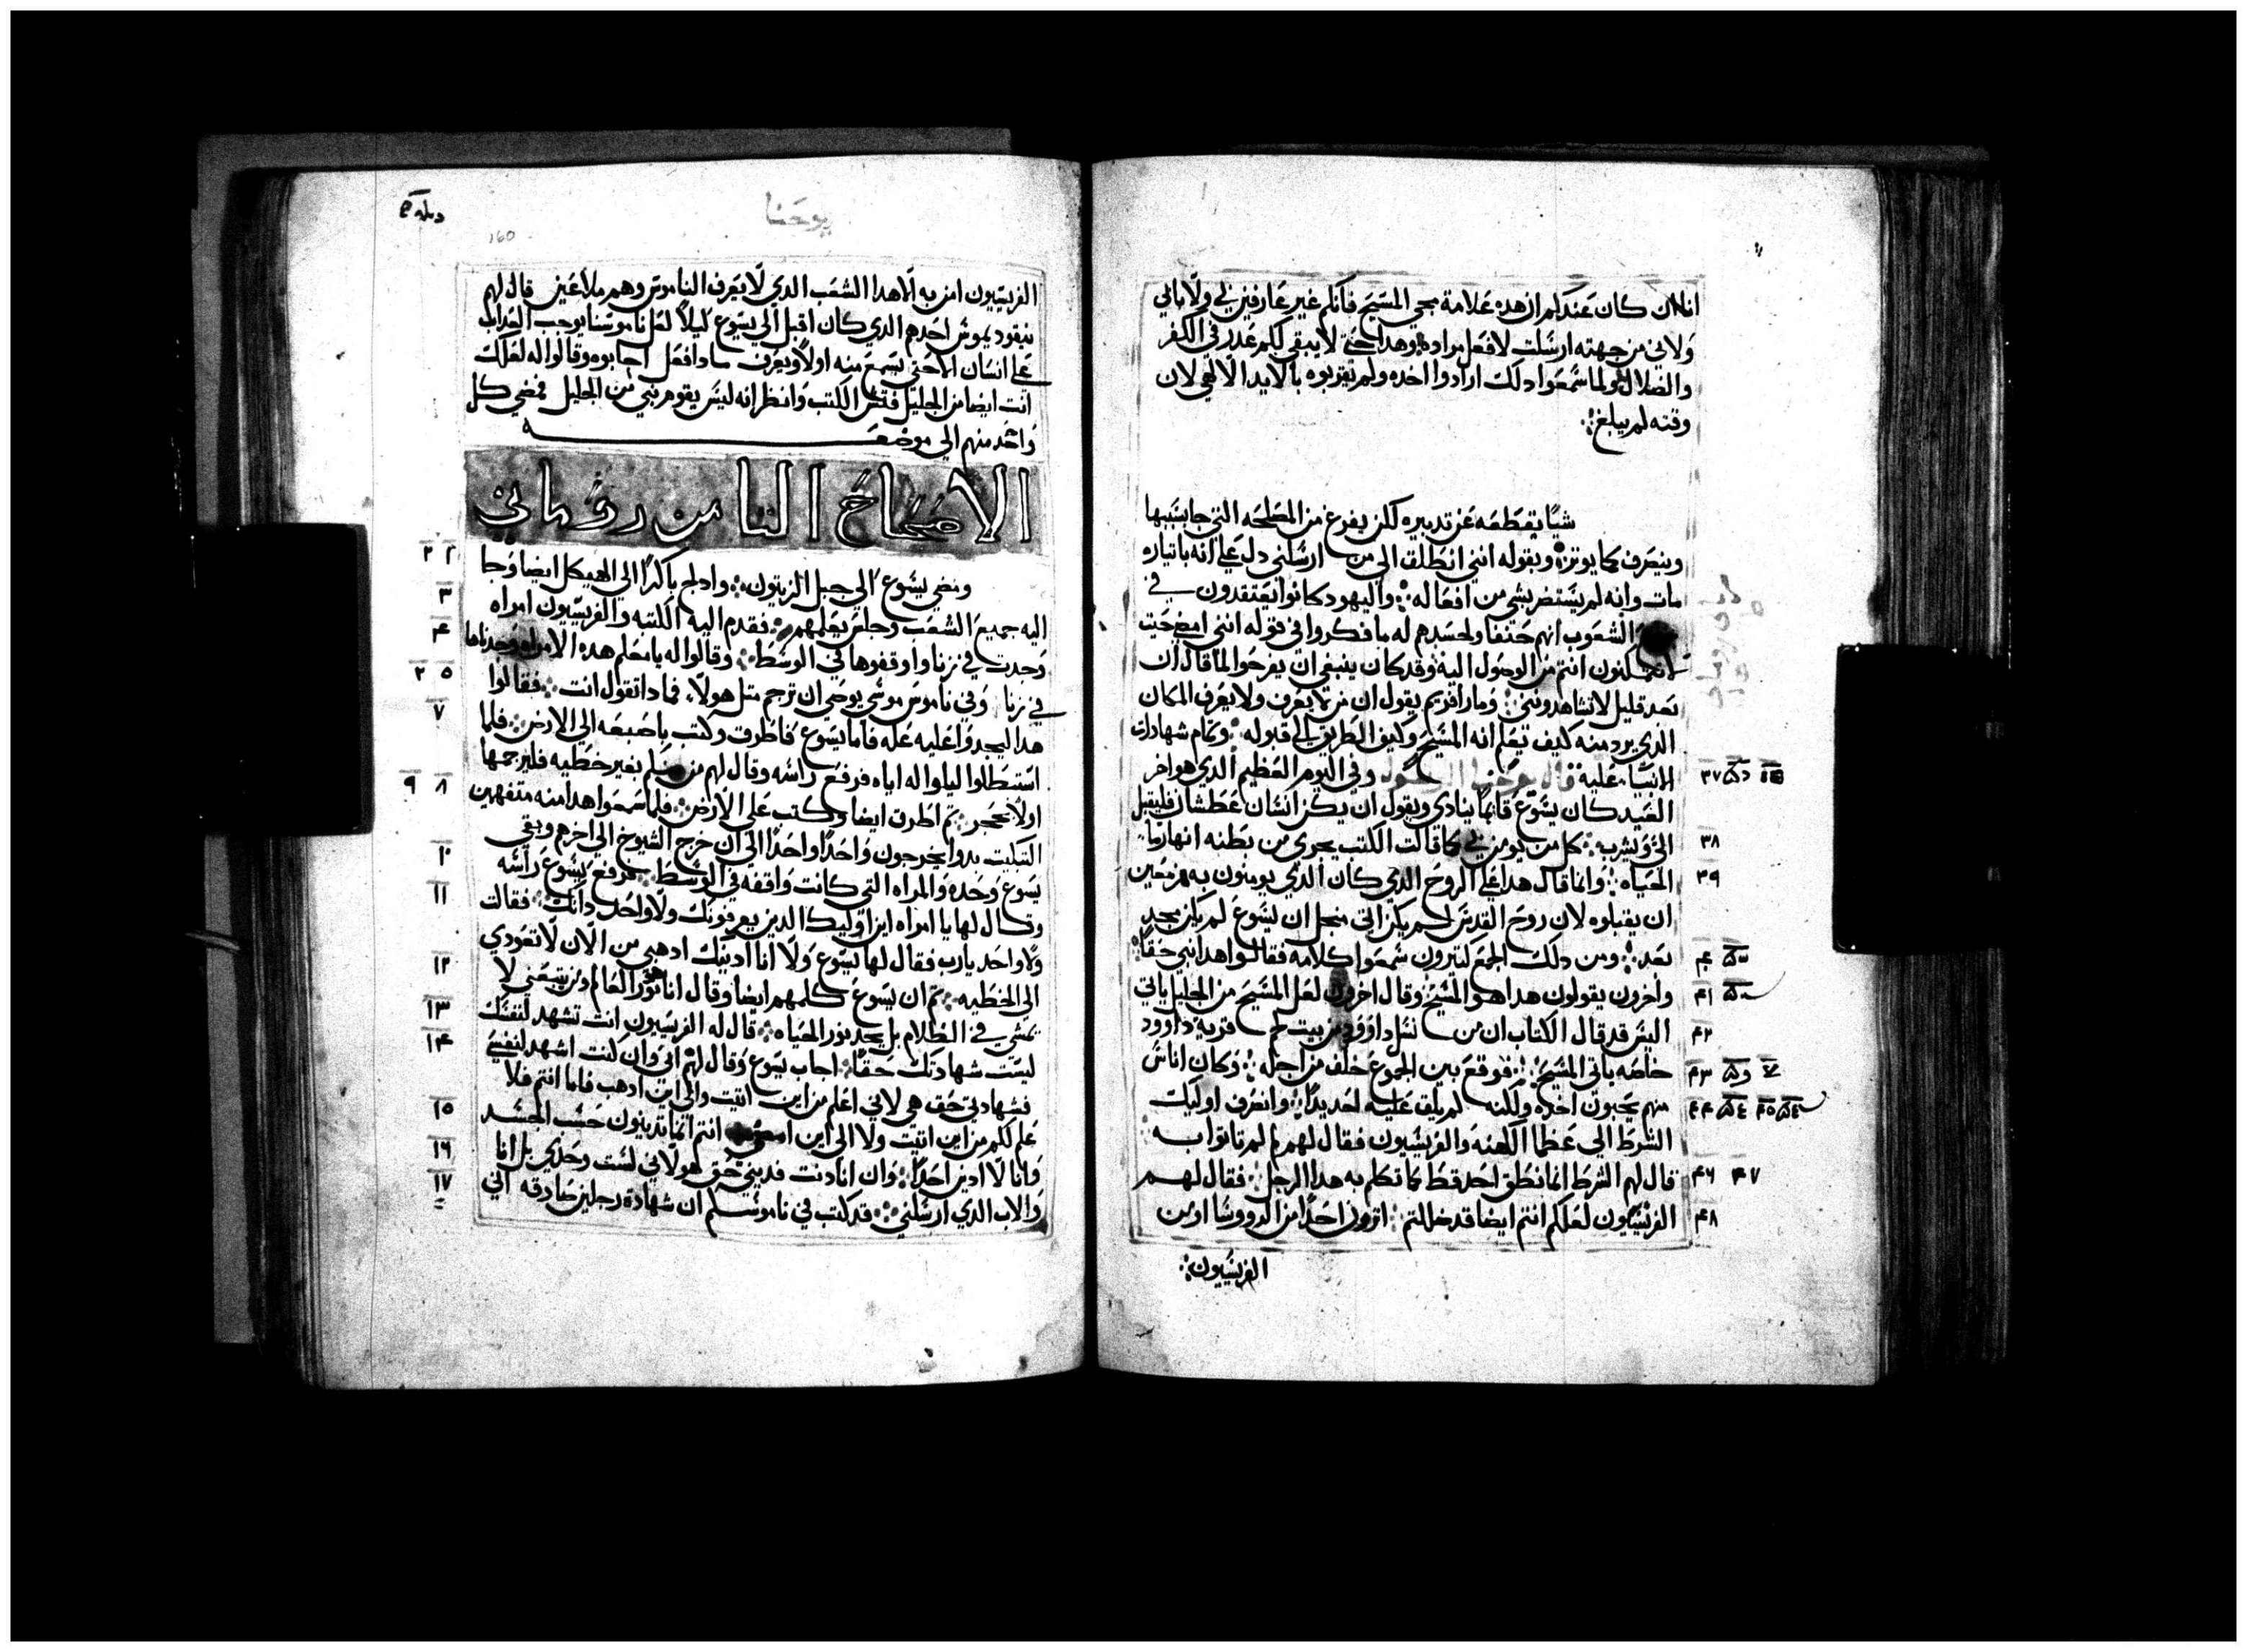 انا لان كان عندكم ان هده علامة مجي المسيح فانكم غير عارفين بي ولا بابي
ولاني من جهته ارسلت لافعل مراده وهدا حتى لا يبقى لكم عدر في الكفر
والضلال ولما سمعوا دلك ارادوا اخده ولم تقربوه بالايدا الالهي لان
وقته لم يبلغ
شيا يقطعه عن تدبيره لكن يفرغ من المصلحه التي جا بسببها
وينصرف كما يوتر وبقوله انني انطلق الى من ارسلني دل على انه باتياره
مات وانه لم يستضر بشي من افعاله واليهود كانوا يعتقدون في
الشعوب انهم حنفا ولحسدهم له ما فكروا في قوله انني امضي حيت
لا تتمكنون انتم من الوصول اليه وقد كان ينبغي ان يفرحوا لما قال ان
بعد قليل لا تشاهدونني ومار افريم يقول ان من لا يعرف ولا يعرف المكان
الدي يرد منه كيف تعلم انه المسيح وكيف الطريق الى قبوله وتمام شهادات
الانبيا عليه قال يوحنا الرسول وفي اليوم العظيم الدي هو اخر
العيد كان يسوع قايما ينادي ويقول ان يكن انسان عطشان فليقبل
الي ويشرب كل من يومن بي كما قالت الكتب يجري من بطنه انهار ما
الحياه وانما قال هدا على الروح الدي كان الدي يومنون به مزمعين
ان يقبلوه لان روح القدس لم يكن اتى منجل ان يسوع لم يكن مجد
بعد ومن دلك الجمع كتيرون سمعوا كلامه فقالوا هدا نبي حقا
واخرون يقولون هدا هو المسيح وقال اخرون لعل المسيح من الجليل ياتي
اليس قد قال الكتاب ان من نسل داوود من بيت لحم قرية داوود
خاصه ياتي المسيح فوقع بين الجموع خلف من اجله وكان اناس
منهم يحبون اخده ولكنه لم يلق عليه احد يدا وانصرف اوليك
الشرط الى عظما الكهنه والفريسيون فقال لهم لما لم تاتوا به
قال لهم الشرط انما نطق احد قط كما تكلم به هدا الرجل فقال لهم
الفريسيون لعلكم انتم ايضا قد ضللتم اترون احدا من الرووسا او من
الفريسيون
٣٧
٣٨
٣٩
٤٠
٤١
٤٢
٤٣
٤٤ ٤٥
٤٦ ٤٧
٤٨
يوحنا
160
الفريسيون امن به الا هدا الشعب الدي لا يعرف الناموس وهم ملاعين قال لهم
نيقوديموس احدهم الدي كان اقبل الى يسوع ليلا لعل ناموسنا يوجب العداب
على انسان الا حتى يسمع منه اولا ويعرف مادا فعل اجابوه وقالوا له لعلك
انت ايضا من الجليل فتش الكتب وانظر انه ليس يقوم نبي من الجليل فمضي كل
واحد منهم الى موضعه
الاصحاح التامن روماني
ومضى يسوع الى جبل الزيتون وادلج باكرا الى الهيكل ايضا وجا
اليه جميع الشعب وجلس يعلمهم فقدم اليه الكتبه والفريسيون امراه
وجدت في زنا واوقفوها في الوسط وقالوا له يا معلم هده الامراه وجدناها
في زنا وفي ناموس موسى يوصي ان ترجم متل هولا فمادا تقول انت فقالوا
هدا ليجدوا عليه عله فاما يسوع فاطرق وكتب باصبعه الى الارض فلما
استبطلوا ليلوا له اياه فرفع راسه وقال لهم من منكم بغير خطيه فليرجمها
اولا بحجر تم اطرق ايضا وكتب على الارض فلما سمعوا هدا منه متفهمين
التبكيت بدوا يخرجون واحدا واحدا الى ان خرج الشيوخ الى اخرهم وبقي
يسوع وحده والمراه التي كانت واقفه في الوسط فرفع يسوع راسه
وقال لها يا امراه اين اوليك الدين يعرفونك ولا واحد دانك فقالت
ولا واحد يارب فقال لها يسوع ولا انا ادينك ادهبي من الان لا تعودي
الى الخطيه تم ان يسوع كلمهم ايضا وقال انا هو نور العالم ومن يتبعني لا
يمشي في الظلام بل يجد نور الحياه قال له الفريسيون انت تشهد لنفسك
ليست شهادتك حقا اجاب يسوع وقال لهم اني وان كنت اشهد لنفسي
فشهادتي حق هي لاني اعلم من اين اتيت والى اين ادهب فاما انتم فلا
علم لكم من اين اتيت ولا الى اين امضي انتم انما تدينون حسب الجسد
وانا لا ادين احدا وان انا دنت فديني حق هو لاني لست وحدي بل انا
والاب الدي ارسلني قد كتب في ناموسكم ان شهادة رجلين صادقه اني
٢ ٣
٣
٤
٥ ٢
٧
٨ ٩
١٠
١١
١٢
١٣
١٤
١٥
١٦
١٧